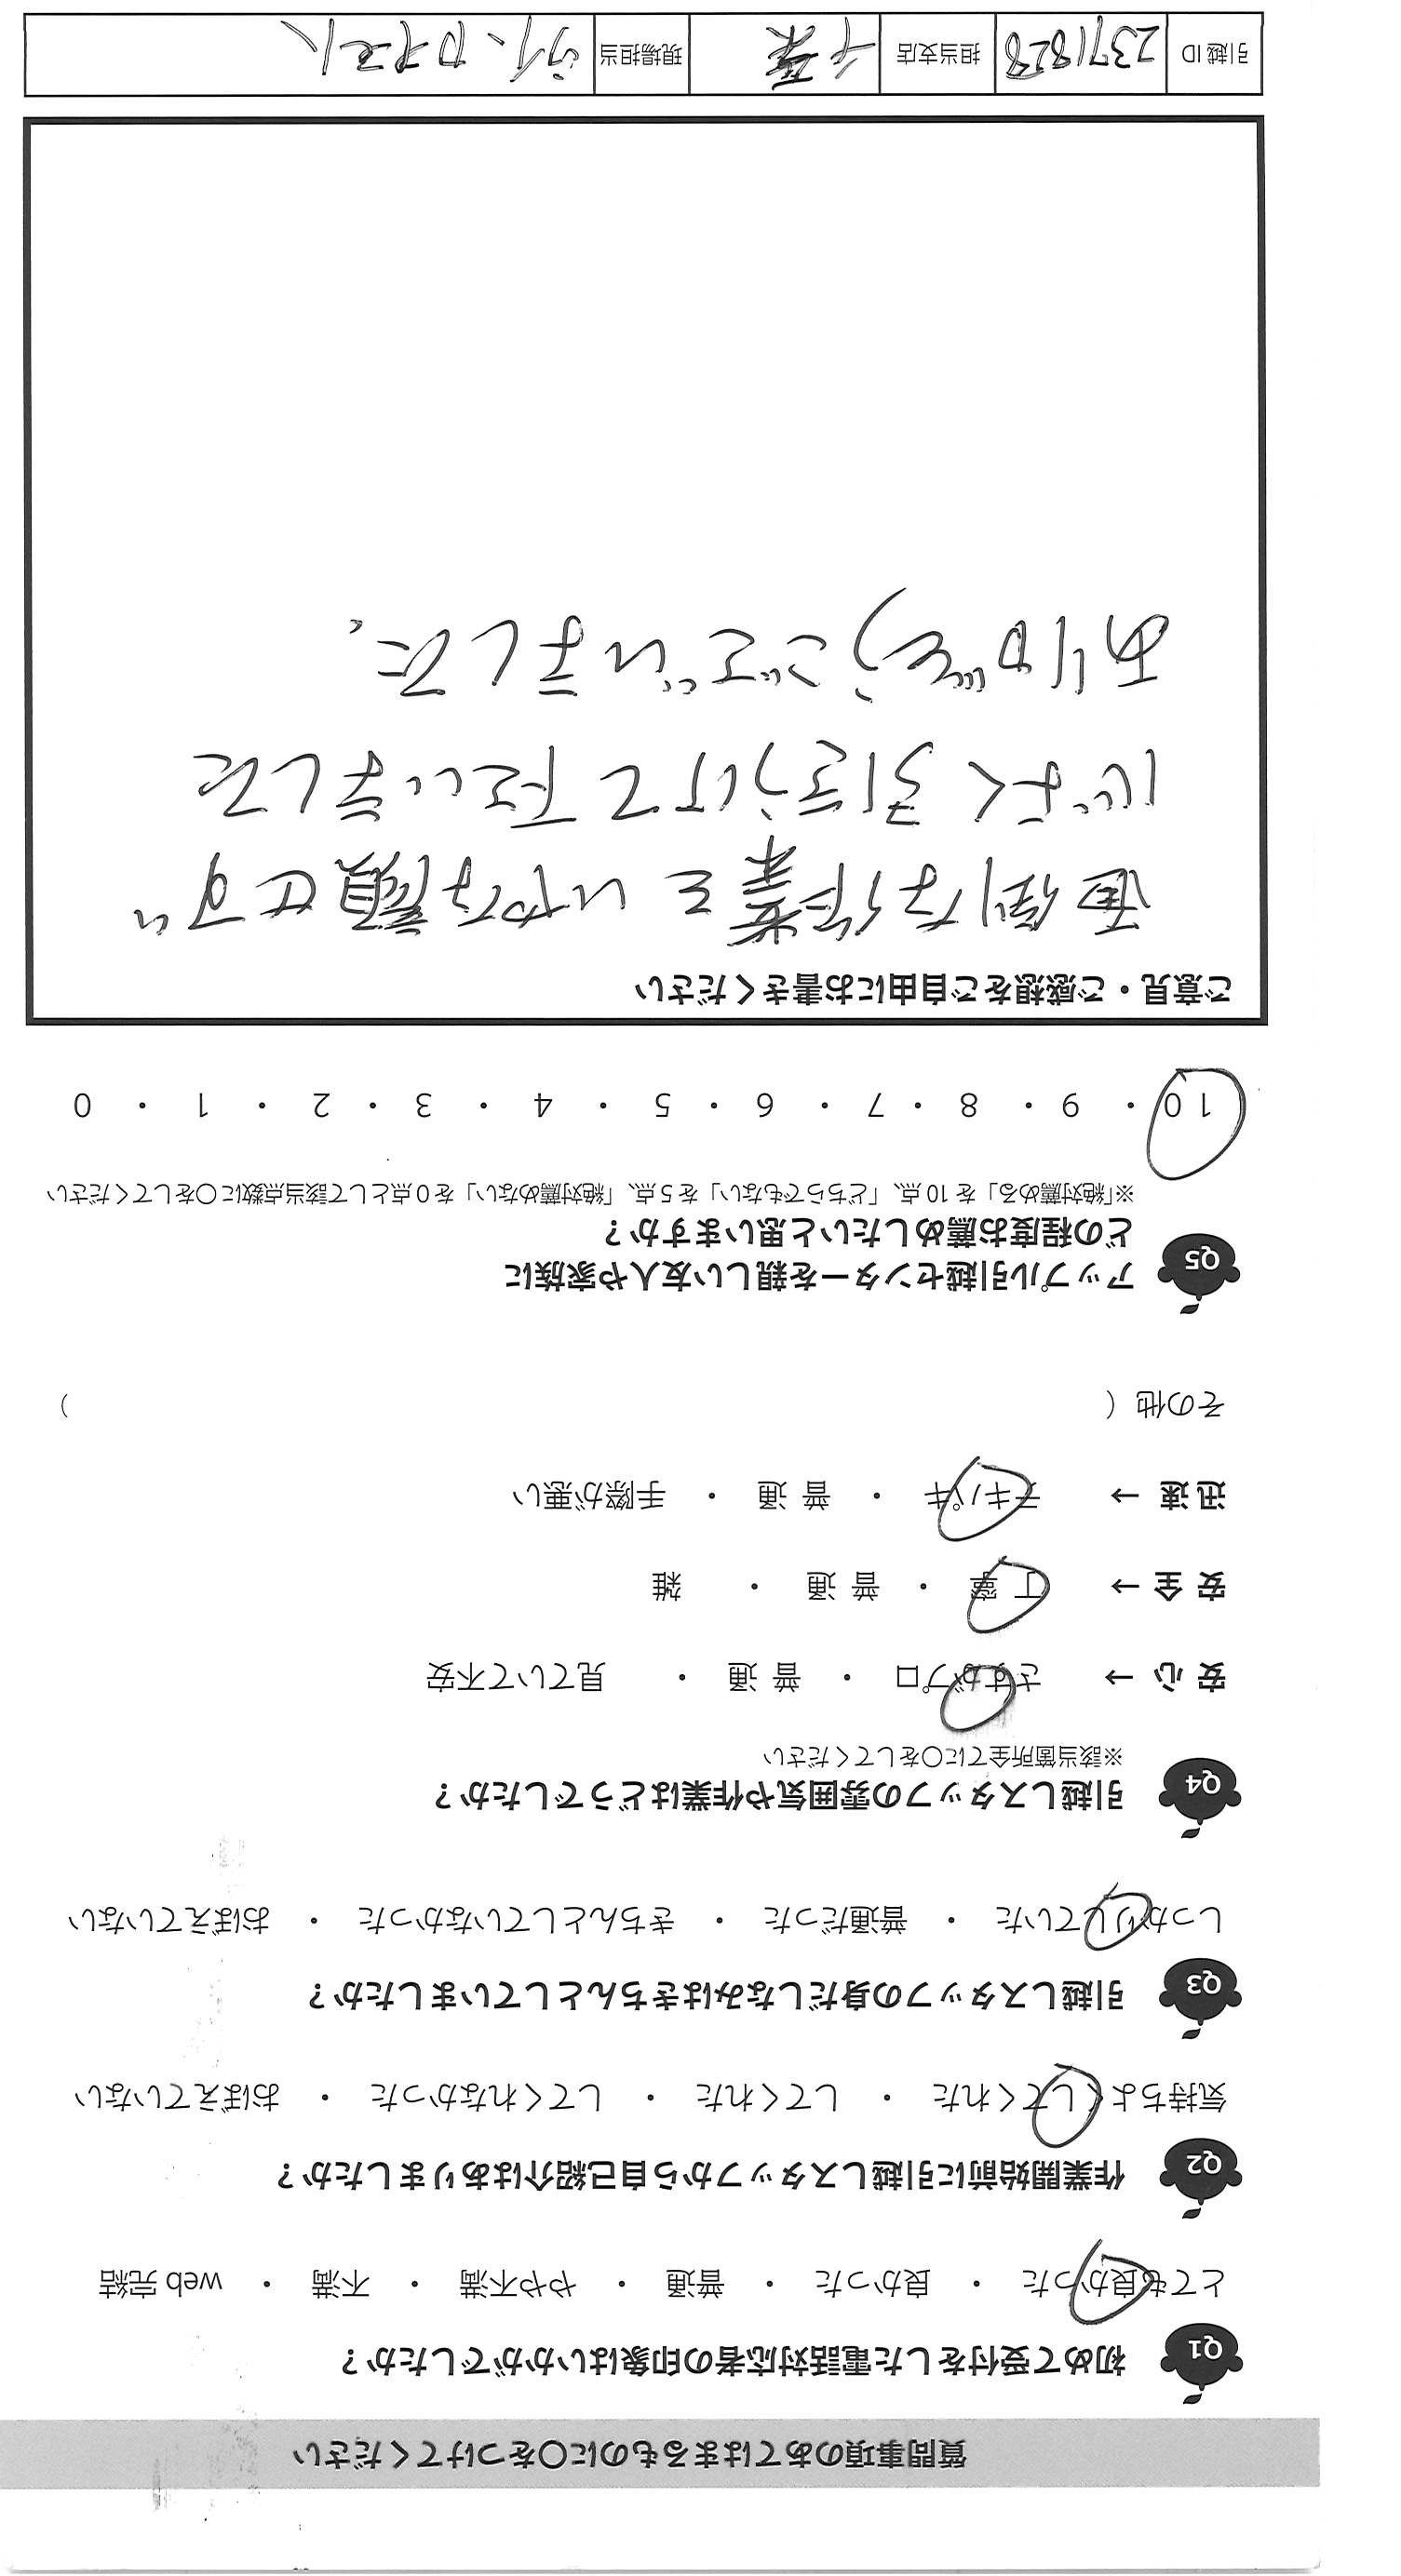 質問事項のあてはまるものに〇をつけてください
Q1 初めて受付をした電話対応者の印象はいかがでしたか？
とても良かった ・ 良かった ・ 普通 ・ やや不満 ・ 不満 ・ web 完結
Q2 作業開始前に引越しスタッフから自己紹介はありましたか？
気持ちよくしてくれた ・ してくれた ・ してくれなかった ・ おぼえていない
Q3 引越しスタッフの身だしなみはきちんとしていましたか？
しっかりしていた ・ 普通だった ・ きちんとしていなかった ・ おぼえていない
Q4 引越しスタッフの雰囲気や作業はどうでしたか？
※該当箇所全てに〇をしてください
安心 → さすがプロ ・ 普通 ・ 見ていて不安
安全 → 丁寧 ・ 普通 ・ 雑
迅速 → テキパキ ・ 普通 ・ 手際が悪い
その他（ ）
Q5 アップル引越センターを親しい友人や家族に
どの程度お薦めしたいと思いますか？
※「絶対薦める」を10点、「どちらでもない」を5点、「絶対薦めない」を0点として該当点数に〇をしてください
10 ・ 9 ・ 8 ・ 7 ・ 6 ・ 5 ・ 4 ・ 3 ・ 2 ・ 1 ・ 0
ご意見・ご感想をご自由にお書きください
面倒な作業をいやな顔せず
心よく引きうけて下さいました
ありがとうございました。
引越ID 2371828 担当支店 千葉 現場担当